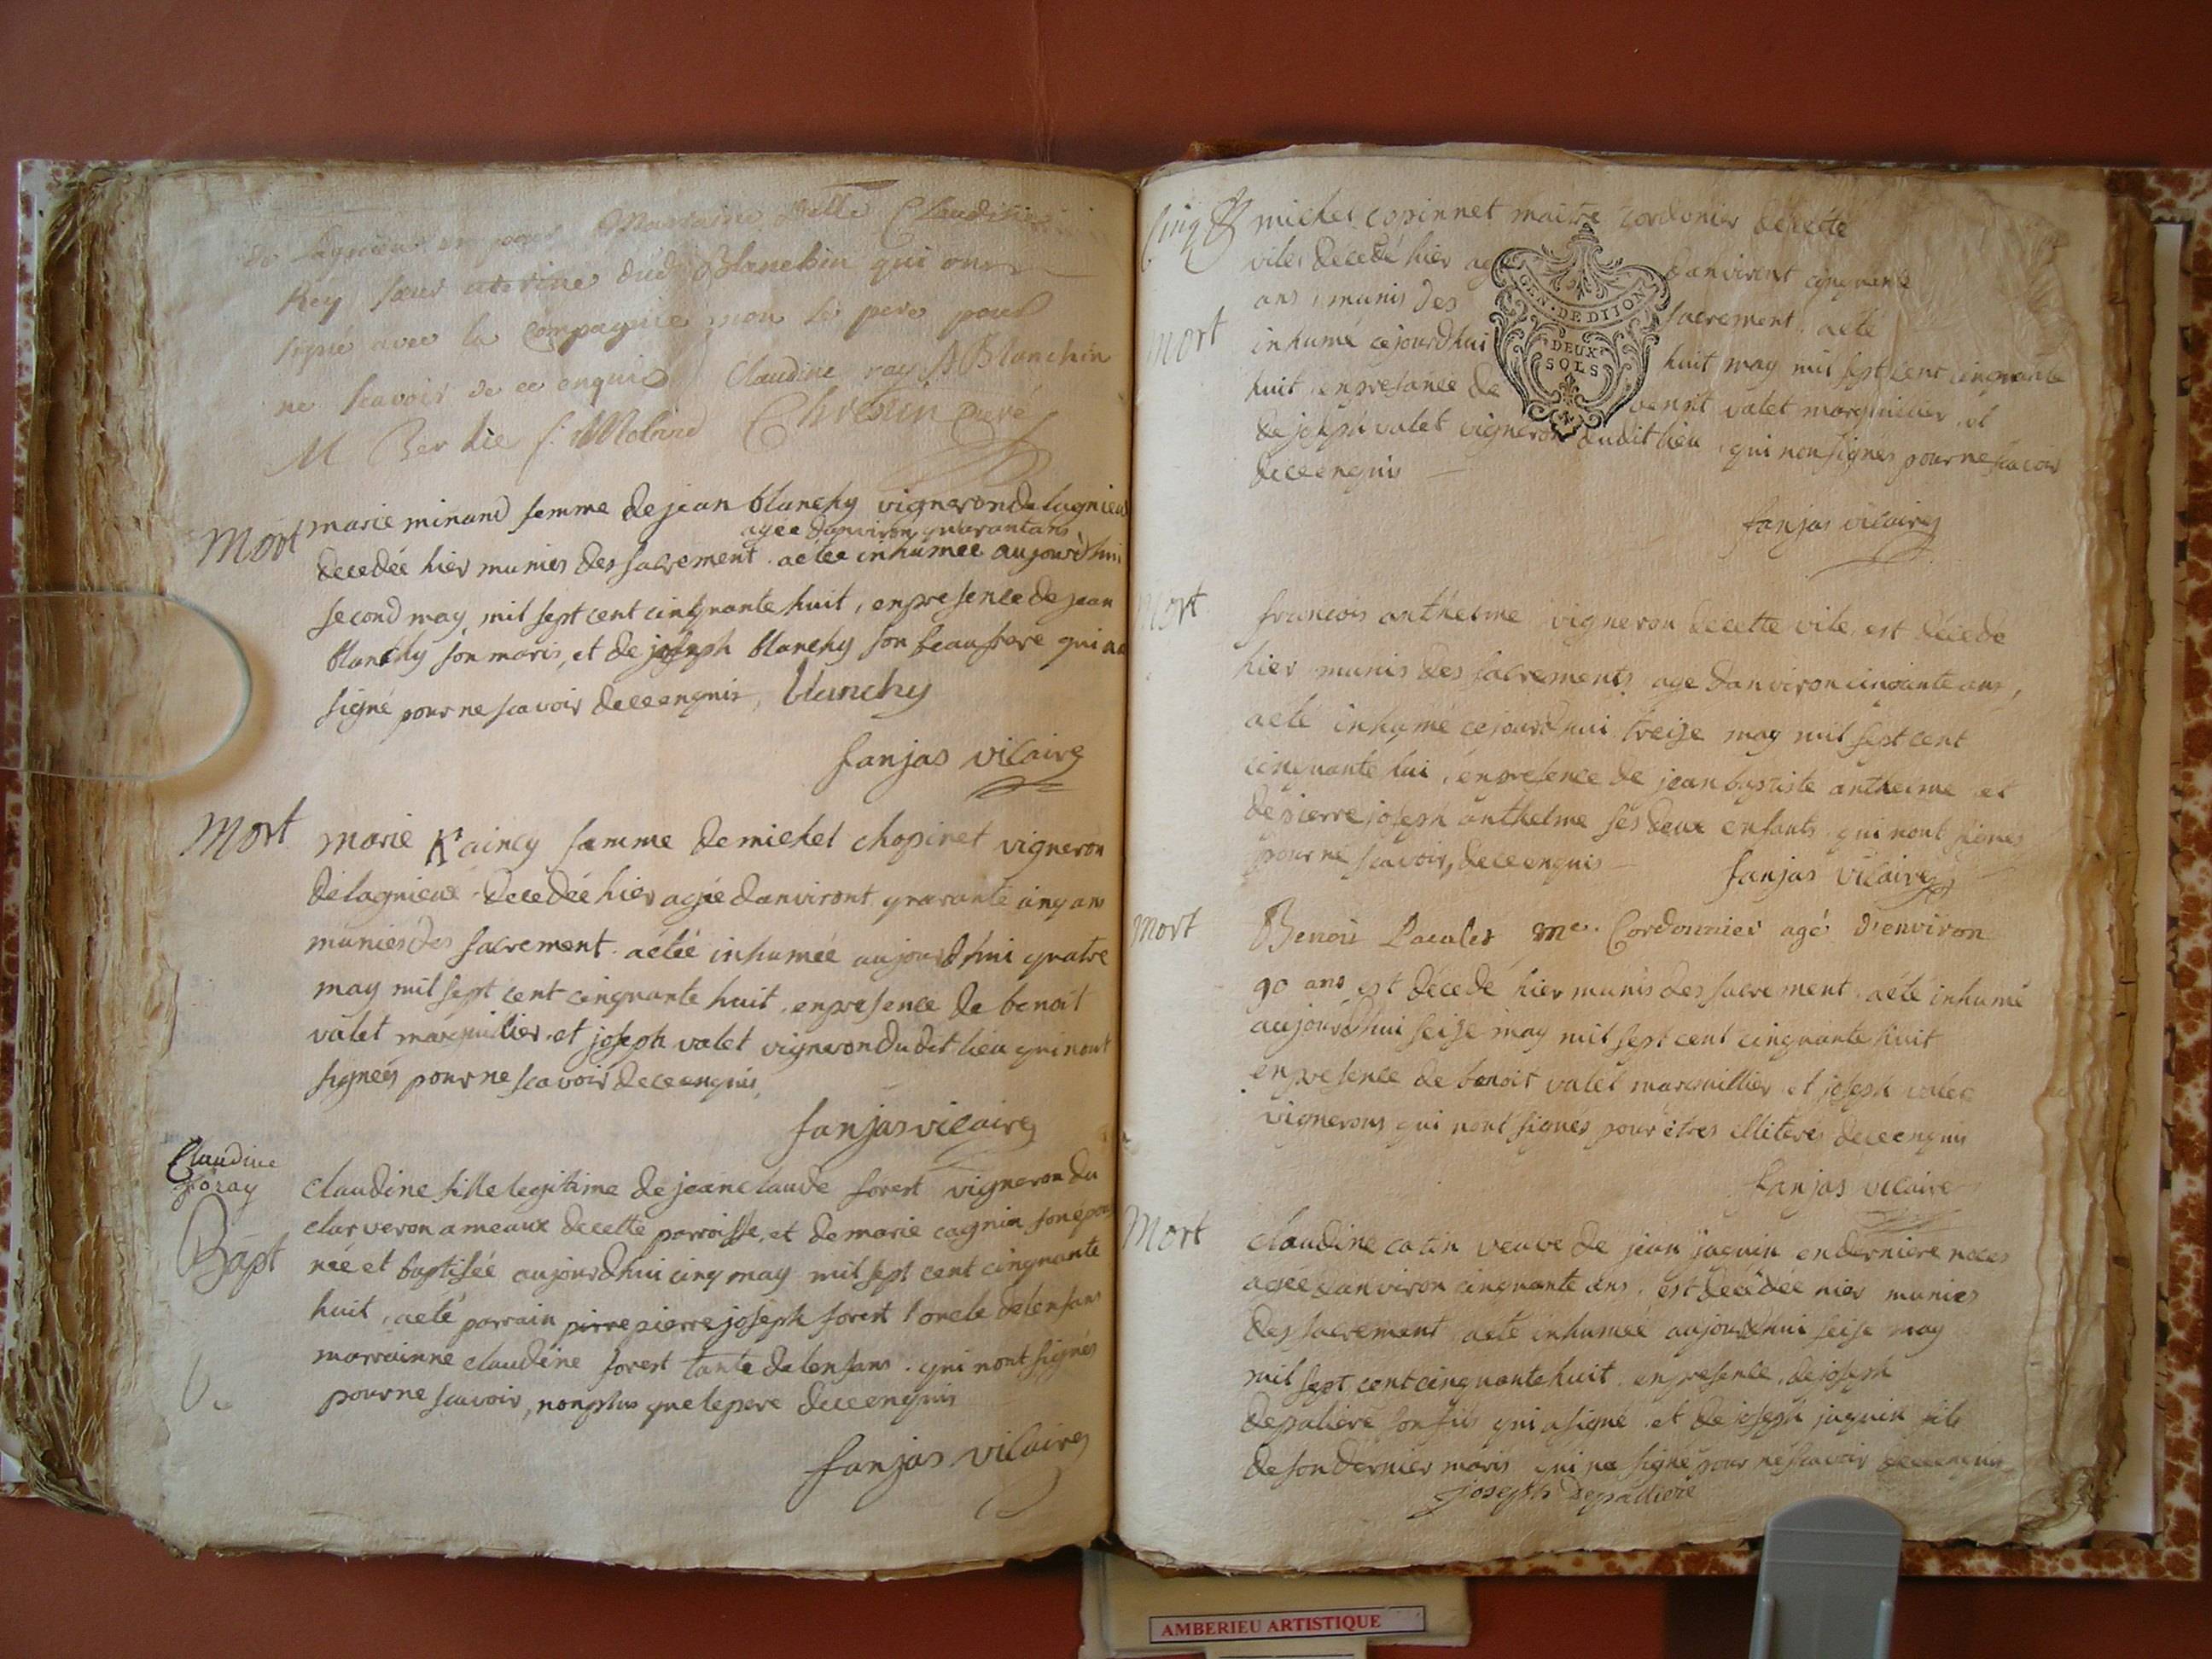 de Lagnieu Marraine delle Claudine
Rey sœur uterine dudt Blanchin qui ont
signé avec la Compagnie non le pere pour
ne scavoir de ce enquis Claudine ray Blanchin
M Curé
Mort
marie minand femme de jean blanchy vigneron de lagnieu
agée danviron quarantans
decedée hier munies des sacrement. aétée inhumee aujourdhui
second may mil sept cent cinquante huit, enpresence de jean
blanchy son maris, et de joseph blanchy son beaufrere qui na
signé pour ne scavoir deceenquis, blanchy
fanjas vicaire
Mort
marie femme de michel chopinet vigneron
de lagnieux decedée hier agée danviront quarante cinq ans
munies des sacrement. aétée inhumée aujourdhui quatre
may mil sept cent cinquante huit. enpresence de benoit
valet marguillier. et joseph valet vigneron dudit lieu qui nont
signées pour ne scavoir deceenquis,
fanjas vicaire
Claudine
foray
Bapt
claudine fille legitime de jean claude forest vigneron du
clar veron ameaux decette parroisse, et de marie cagnin son épou
née et baptisée aujourdhui cinq may mil sept cent cinquante
huit, aeté parrain pirre pierre joseph forest l'oncle delenfans
marrainne claudine forest tante delenfans. qui nont signés
pour ne scavoir, non plus que le pere deceenquis
fanjas vicaire
Cinq
michel copinnet maitre cordonier decette
viles decedé hier agé danviront cinquante
ans, munis des sacrement. aeté
Mort
inhumé cejourdhui huit may mil sept cent cinquante
huit, enpresance de benoit valet marguillier, et
de joseph valet vigneron dudit lieu, qui non signés pour ne scavoir
deceenquis
GEN. DE DIION
DEUX
SOLS
fanjas vicaire
Mort
francois anthelme vigneron decette vile, est décedé
hier munis des sacrements age danviron cinquante ans,
aeté inhumé cejourdhui treize may mil sept cent
cinquante hui, enpresence de jean baptiste anthelme et
de pierre joseph anthelme ses deux enfants qui nont signes
pour ne scavoir, deceenquis
fanjas vicaire
Mort
Benoit me. Cordonnier agé d'environ
90 ans est décedé hier munis des sacrement. aété inhumé
aujourdhui seize may mil sept cent cinquante huit
enpresence de benoit valet marguillier et joseph valet
vignerons qui nont signés pour étres illiteres deceenquis
fanjas vicaire
Mort
claudine catin veuve de jean jaquin enderniere noces
agée danviron cinquante ans. est decédée hier munies
des sacrement aeté inhumée aujourdhui seise may
mil sept cent cinquante huit. enpresence, de joseph
depaliere son fils qui a signé. et de joseph jaquin fils
de son dernier maris qui na signé pour ne scavoir deceenquis
joseph depalliere
AMBERIEU ARTISTIQUE